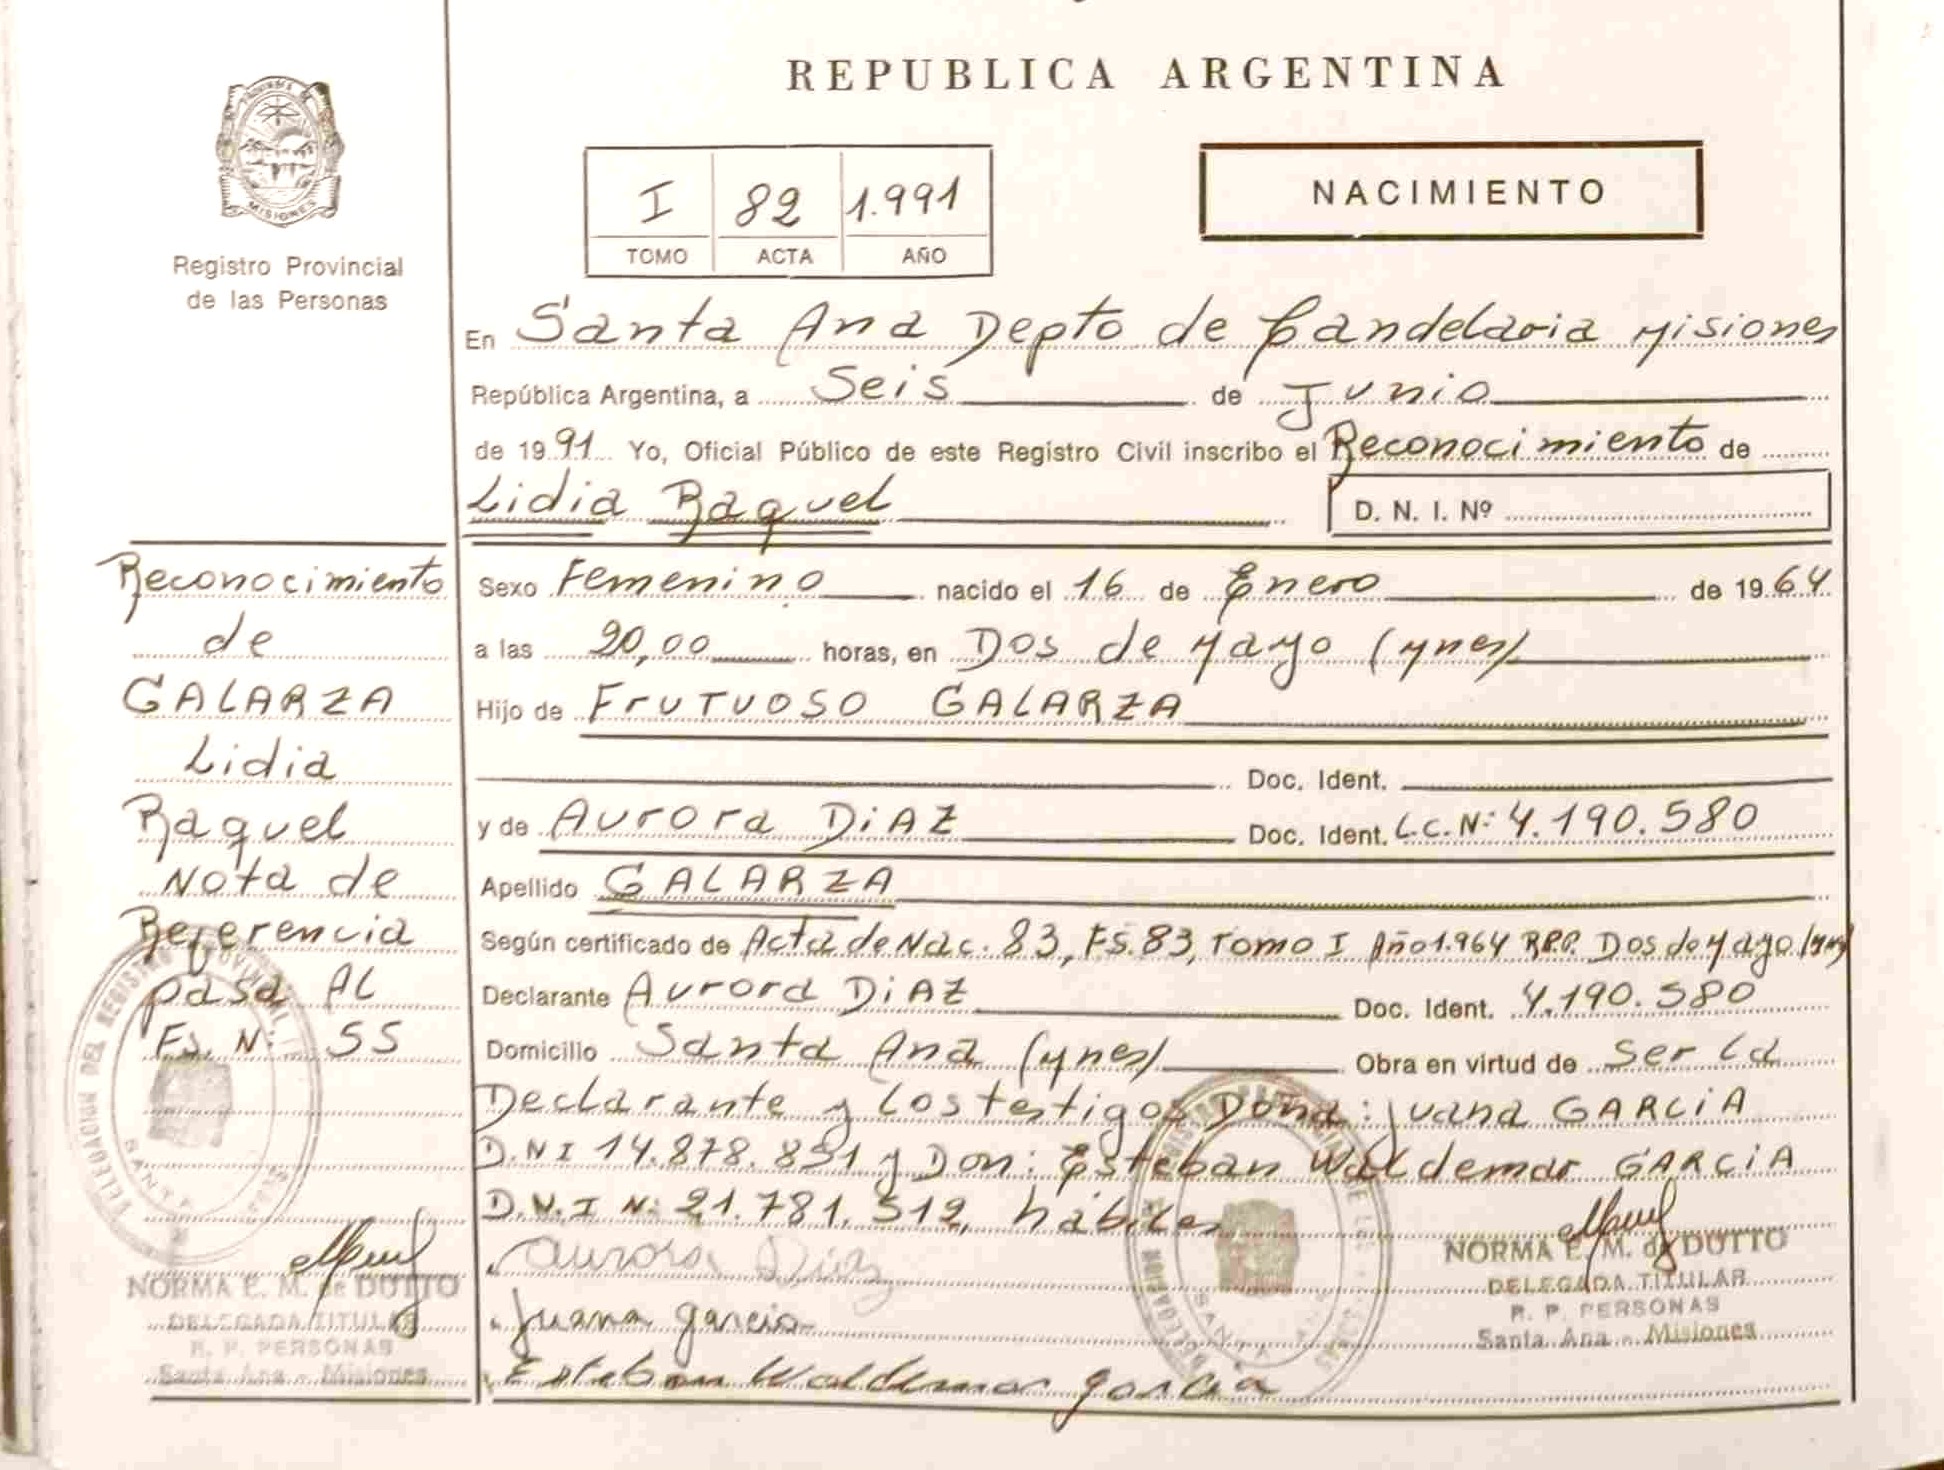 REPUBLICA ARGENTINA
PROVINCIA DE
MISIONES
Registro Provincial
de las Personas
I 82 1.991
TOMO ACTA AÑO
NACIMIENTO
En Santa Ana Depto de Candelaria Misiones
República Argentina, a Seis de Junio
de 1991 Yo, Oficial Público de este Registro Civil inscribo el Reconocimiento de
Lidia Raquel D. N. I. Nº
Reconocimiento
de
GALARZA
Lidia
Raquel
Nota de
Referencia
pasa AL
Fs. N: 55
NORMA E. M. de DUTTO
DELEGADA TITULAR
R. P. PERSONAS
Santa Ana - Misiones
Sexo Femenino nacido el 16 de Enero de 1964
a las 20,00 horas, en Dos de Mayo (Mnes)
Hijo de FRUTUOSO GALARZA
Doc. Ident.
y de Aurora DiAZ Doc. Ident. L.C.N: 4.190.580
Apellido GALARZA
Según certificado de Acta de Nac. 83, Fs. 83, Tomo I Año 1.964 R.P.P. Dos de Mayo (Mnes)
Declarante Aurora DiAZ Doc. Ident. 4.190.580
Domicilio Santa Ana (Mnes) Obra en virtud de Ser La
Declarante y Los testigos Doña: Juana GARCiA
D.N.I 14.878.851 y Don: Esteban Waldemar GARCiA
D.N.I N: 21.781.512, hábiles
Aurora Diaz
Juana garcia
Esteban Waldemar garcia
NORMA E. M. de DUTTO
DELEGADA TITULAR
R. P. PERSONAS
Santa Ana - Misiones